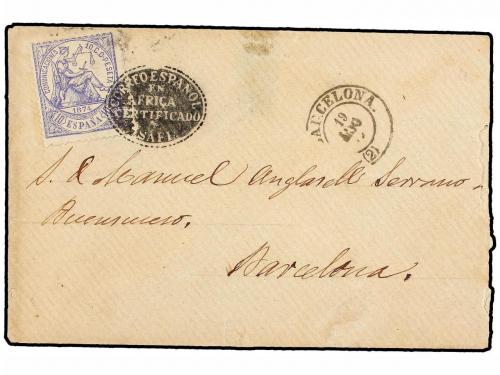 COMUNICACIONES 10 C. D PESETA
1874
10 ESPAÑA
CORREO ESPAÑOL
EN
AFRICA
CERTIFICADO
SAFI
BARCELONA.
19
(2)
S. D. Manuel Anglasell Serrano-
Buensuceso.
Barcelona.